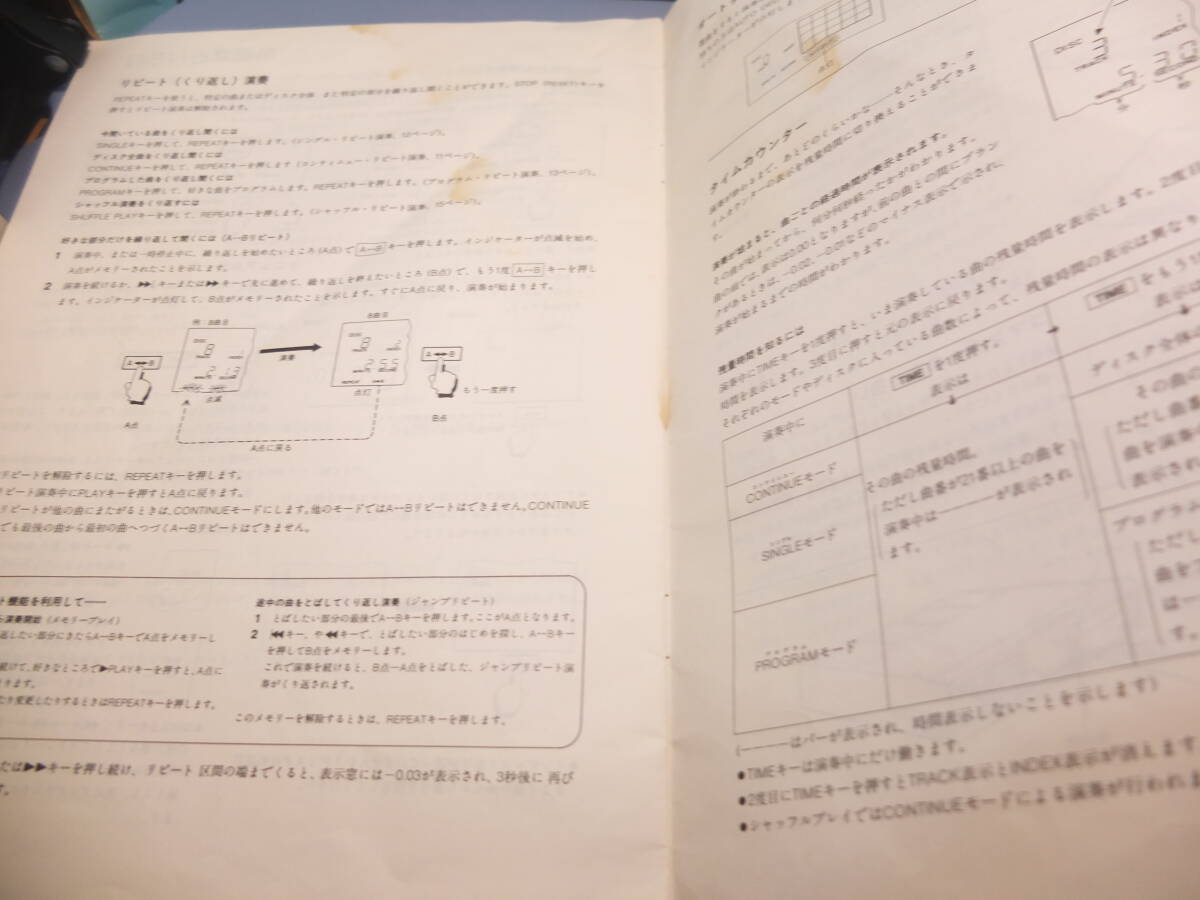 リピート（くり返し）演奏
REPEATキーを使うと、特定の曲またはディスク全体、また特定の部分を繰り返し聞くことができます。STOP（RESET）キーを
押すとリピート演奏は解除されます。
今聞いている曲をくり返し聞くには
SINGLEキーを押して、REPEATキーを押します。（シングル・リピート演奏、12ページ）。
ディスク全曲をくり返し聞くには
CONTINUEキーを押して、REPEATキーを押します（コンティニュー・リピート演奏、11ページ）。
プログラムした曲をくり返し聞くには
PROGRAMキーを押して、好きな曲をプログラムします。REPEATキーを押します。（プログラム・リピート演奏、13ページ）。
シャッフル演奏をくり返すには
SHUFFLE PLAYキーを押して、REPEATキーを押します。（シャッフル・リピート演奏、15ページ）。
好きな部分だけを繰り返して聞くには（A↔Bリピート）
1 演奏中、または一時停止中に、繰り返しを始めたいところ（A点）で A↔B キーを押します。インジケーターが点滅を始め、
A点がメモリーされたことを示します。
2 演奏を続けるか、▶▶|キーまたは▶▶キーで先に進めて、繰り返しを終えたいところ（B点）で、もう1度 A↔B キーを押し
ます。インジケーターが点灯して、B点がメモリーされたことを示します。すぐにA点に戻り、演奏が始まります。
例：8曲目
8曲目
DISC
8
TRACK
INDEX
MINUTE
SECOND
2 13
点滅
演奏
DISC
8 2
2 55
MINUTE SECOND
REPEAT
点灯
A↔B
A点
A↔B
もう一度押す
B点
A点に戻る
リピートを解除するには、REPEATキーを押します。
リピート演奏中にPLAYキーを押すとA点に戻ります。
リピートが他の曲にまたがるときは、CONTINUEモードにします。他のモードではA↔Bリピートはできません。CONTINUE
でも最後の曲から最初の曲へつづくA↔Bリピートはできません。
ト機能を利用して――
ら演奏開始（メモリープレイ）
返したい部分にきたらA↔BキーでA点をメモリーし
続けて、好きなところで▶PLAYキーを押すと、A点に
ります。
たり変更したりするときはREPEATキーを押します。
途中の曲をとばしてくり返し演奏（ジャンプリピート）
1 とばしたい部分の最後でA↔Bキーを押します。ここがA点となります。
2 |◀◀キー、や◀◀キーで、とばしたい部分のはじめを探し、A↔Bキー
を押してB点をメモリーします。
これで演奏を続けると、B点―A点をとばした、ジャンプリピート演
奏がくり返されます。
このメモリーを解除するときは、REPEATキーを押します。
たは▶▶キーを押し続け、リピート区間の端までくると、表示窓には−0.03が表示され、3秒後に再び
す。
点灯
DISC
3
TRACK
INDEX
5 30
MINUTE
SECOND
分
秒
タイムカウンター
演奏が終わるまで、あとどのくらいかな――そんなとき、タ
イムカウンターの表示を残量時間に切り換えることができま
す。
演奏が始まると、曲ごとの経過時間が表示されます。
その曲が始まってから、何分何秒経ったかがわかります。
曲の頭では、表示は0.00となりますが、前の曲との間にブラン
クがあるときは、−0.02、−0.01などのマイナス表示で示され、
演奏が始まるまでの時間がわかります。
残量時間を知るには
演奏中にTIMEキーを1度押すと、いま演奏している曲の残量時間を表示します。2度目
時間を表示します。3度目に押すと元の表示に戻ります。
それぞれのモードやディスクに入っている曲数によって、残量時間の表示は異なり
演奏中に
TIME を1度押す。
表示は
TIME をもう1
表示は
CONTINUEモード
SINGLEモード
PROGRAMモード
その曲の残量時間。
ただし曲番が21番以上の曲を
演奏中は―――が表示され
ます。
ディスク全体の
その曲の
ただし
曲を演奏の
表示され
プログラム
ただし
曲を
は―
す。
（―――はバーが表示され、時間表示しないことを示します）
●TIMEキーは演奏中にだけ働きます。
●2度目にTIMEキーを押すとTRACK表示とINDEX表示が消えます
●シャッフルプレイではCONTINUEモードによる演奏が行われま